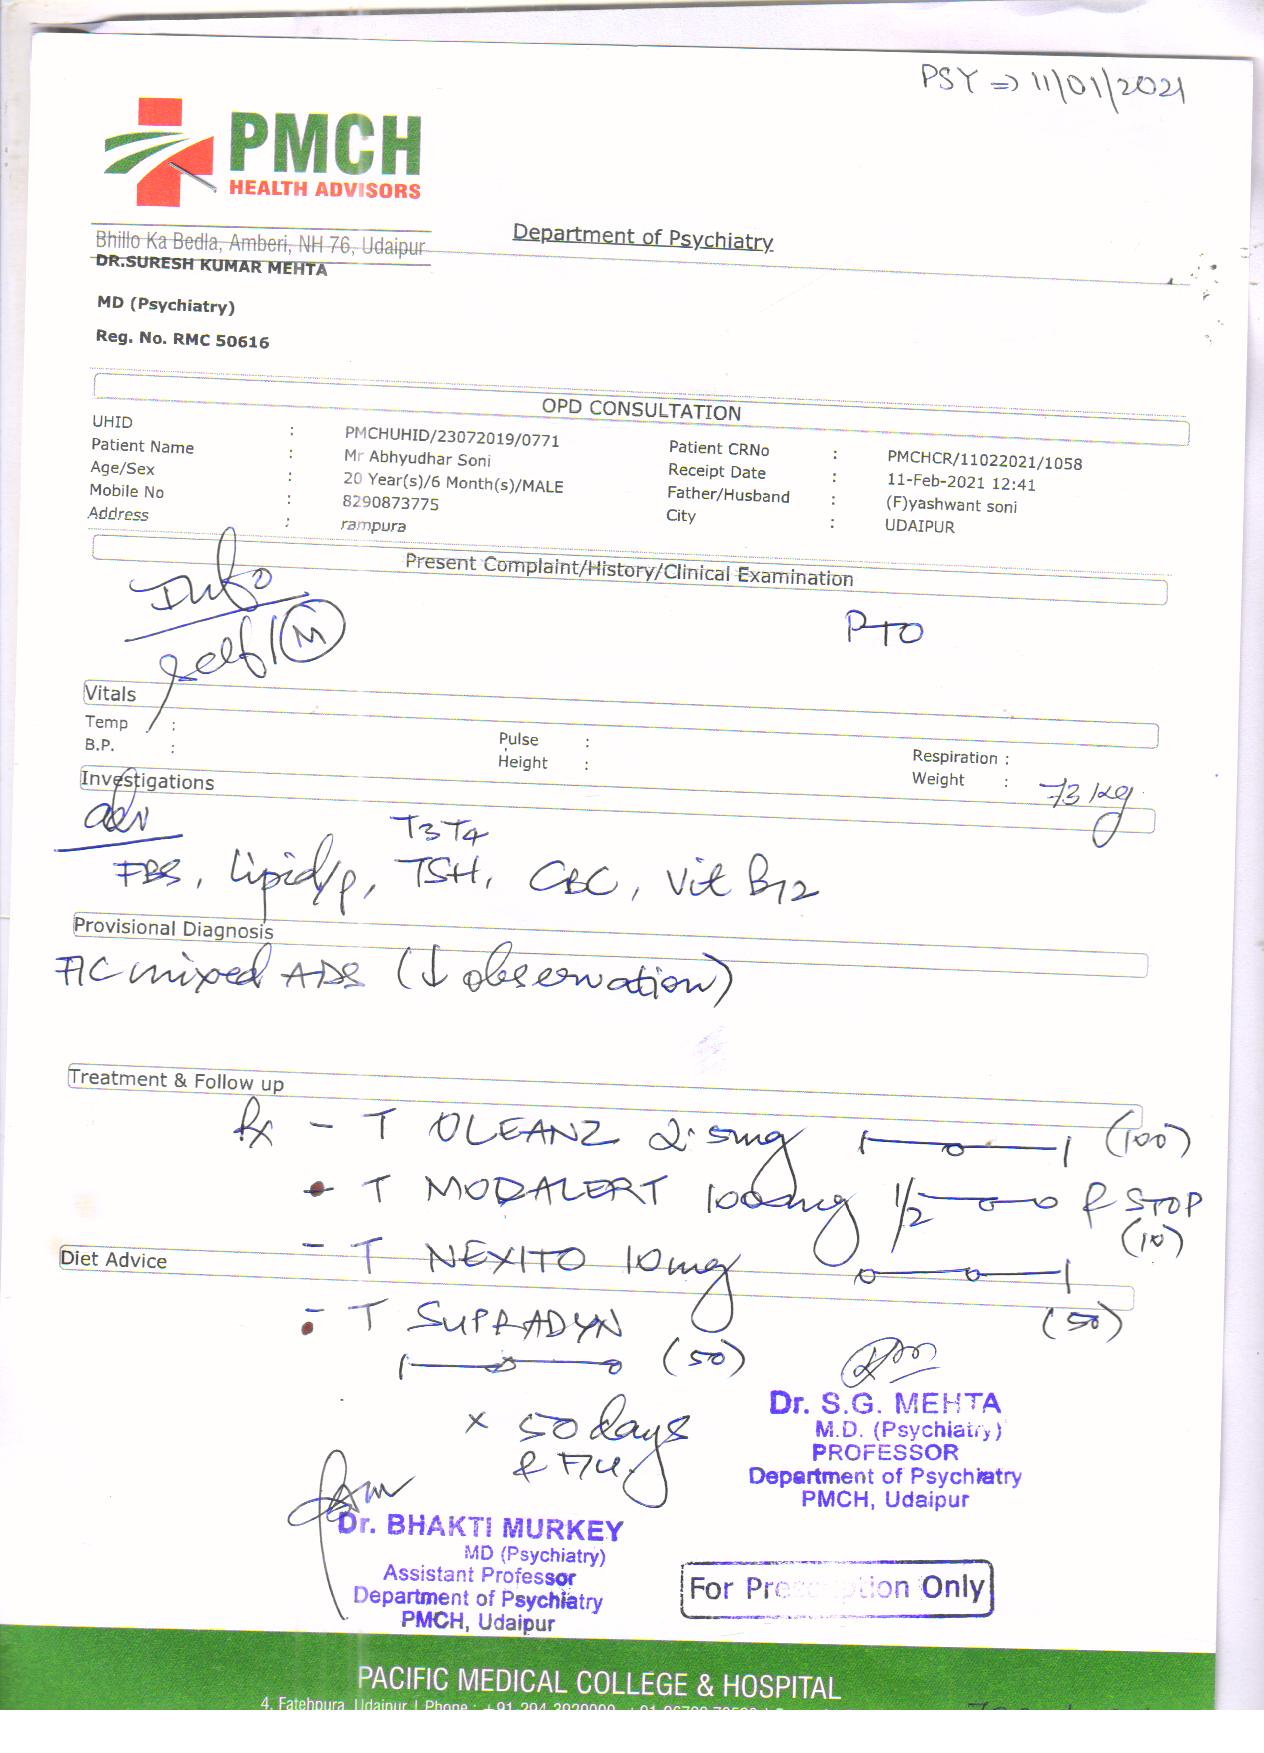 PSY => 11/01/2021
PMCH
HEALTH ADVISORS
Bhillo Ka Bedla, Amberi, NH 76, Udaipur
Department of Psychiatry
DR.SURESH KUMAR MEHTA
MD (Psychiatry)
Reg. No. RMC 50616
OPD CONSULTATION
UHID : PMCHUHID/23072019/0771 Patient CRNo : PMCHCR/11022021/1058
Patient Name : Mr Abhyudhar Soni Receipt Date : 11-Feb-2021 12:41
Age/Sex : 20 Year(s)/6 Month(s)/MALE Father/Husband : (F)yashwant soni
Mobile No : 8290873775 City : UDAIPUR
Address : rampura
Present Complaint/History/Clinical Examination
Info
self/(M)
PTO
Vitals
Temp : Pulse : Respiration :
B.P. : Height : Weight : 73 kg
Investigations
adv
T3 T4
FBS, Lipid/p, TSH, CBC, Vit B12
Provisional Diagnosis
mixed ADS (↓ observation)
Treatment & Follow up
Rx - T OLEANZ 2.5mg (100)
T MODALERT 100mg 1/2 & STOP
(10)
- T NEXITO 10mg
Diet Advice
(50)
- T SUPRADYN
(50)
x 50 days
Dr. S.G. MEHTA
M.D. (Psychiatry)
PROFESSOR
Department of Psychiatry
PMCH, Udaipur
Dr. BHAKTI MURKEY
MD (Psychiatry)
Assistant Professor
Department of Psychiatry
PMCH, Udaipur
For Prescription Only
PACIFIC MEDICAL COLLEGE & HOSPITAL
4, Fatehpura, Udaipur | Phone :